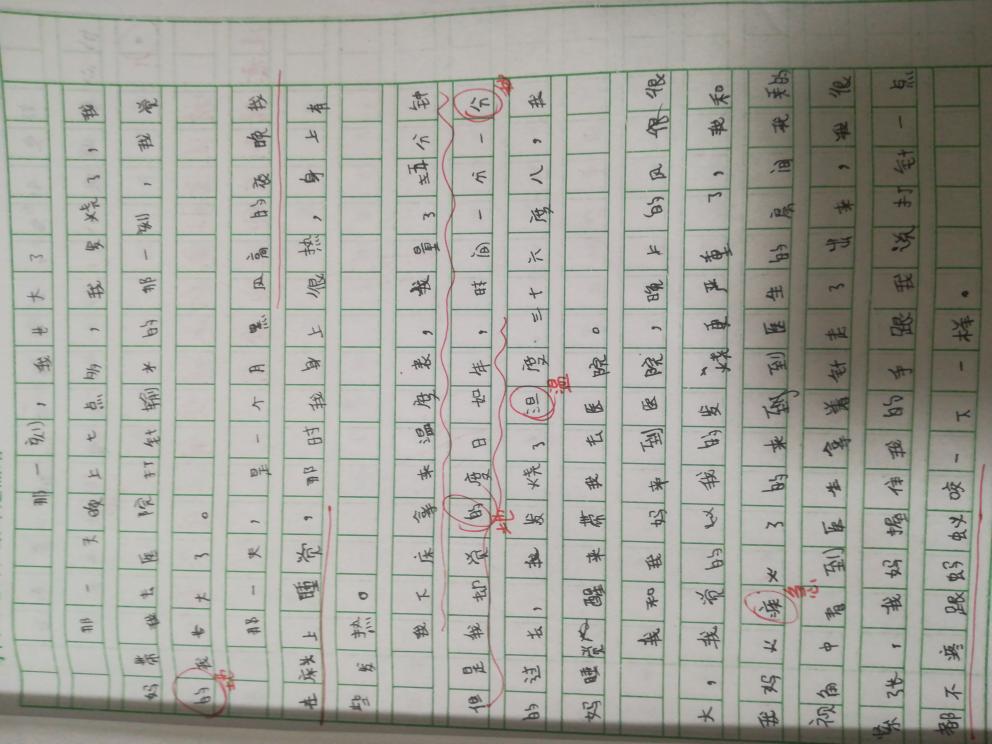 那一刻，我长大了
那一天晚上七点多，我发烧了，我
妈带我去医院打针输水的那一刻，我觉
的我长大了。
得
那一天，是一个月黑风高的夜晚我
在床上睡觉，那时我身上很热，身上有
些发热。
我下床拿来温度表，我量了五分钟
但是我却觉的度日如年，时间一分一分
得
秒
的过去，我发烧了温度三十六度八，我
温
妈睡觉醒来带我去医院。
我和我妈来到医院，晚上的风很很
大，我觉的以我的发烧更严重了，我和
我妈火了的来到到医生的房间我的
急
视角中看到医生拿着针走了出来，我很
紧张，我妈握住我的手跟我说打针一点
都不疼跟蚂蚁咬一下一样。